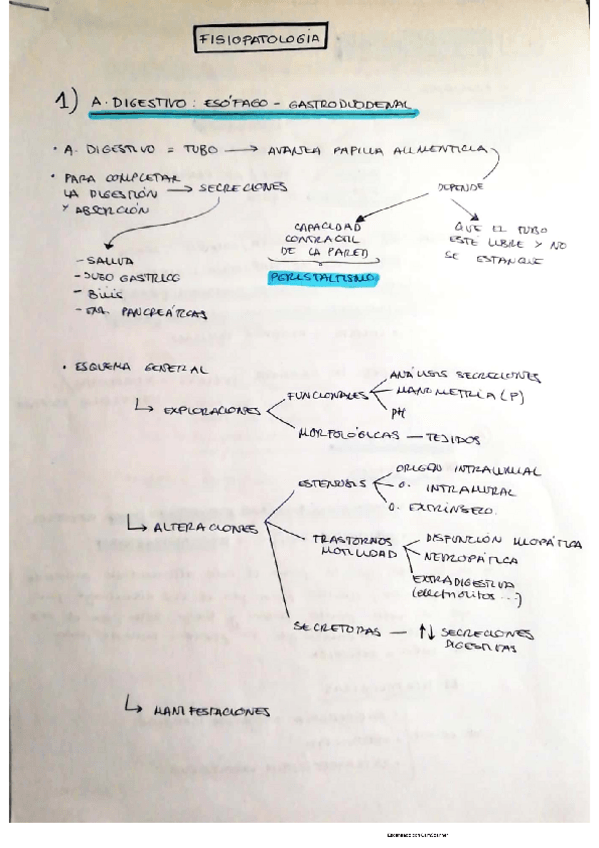 FISIOPATOLOGÍA
1) A. DIGESTIVO: ESÓFAGO - GASTRODUODENAL
· A. DIGESTIVO = TUBO → AVANZA PAPILLA ALIMENTICIA
DEPENDE
CAPACIDAD
CONTRACTIL
DE LA PARED
PERISTALTISMO
QUE EL TUBO
ESTE LIBRE Y NO
SE ESTANQUE
· PARA COMPLETAR
LA DIGESTIÓN → SECRECIONES
Y ABSORCIÓN
- SALIVA
- JUGO GASTRICO
- Bilis
- PANCREÁTICAS
· ESQUEMA GENERAL
↳ EXPLORACIONES
FUNCIONALES
ANÁLISIS SECRECIONES
MANOMETRÍA (P)
pH
MORFOLÓGICAS — TEJIDOS
↳ ALTERACIONES
ESTENOSIS
ORIGEN INTRALUMINAL
O. INTRAMURAL
O. EXTRÍNSECO.
TRASTORNOS
MOTILIDAD
DISFUNCIÓN MIOPÁTICA
NEUROPÁTICA
EXTRADIGESTIVA
(electrolitos ...)
SECRETORAS — ↑↓ SECRECIONES
DIGESTIVAS
↳ MANIFESTACIONES
Escaneado con CamScanner